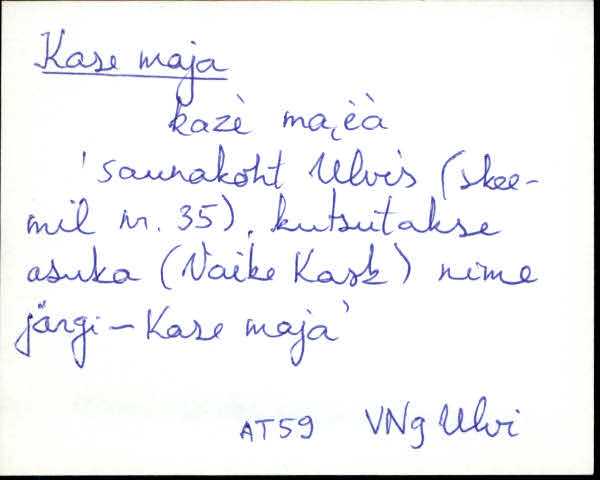 Kase maja
kazè ma
'saunakoht Ulvis (skee-
mil nr. 35), kutsutakse
asuka (Vaike Kask) nime
järgi – Kase maja'
AT59 VNg Ulvi